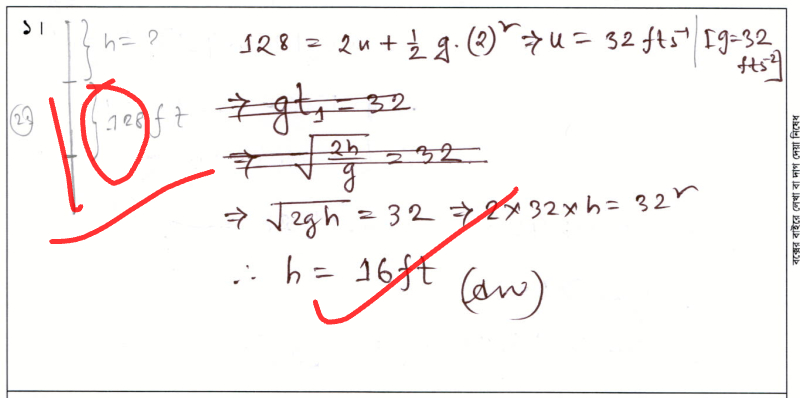 ১।
h = ?
128 = 2u + ½ g · (2)² ⇒ u = 32 fts⁻¹ | [g=32 fts⁻²]
128 ft
⇒ gt₁ = 32
⇒ √(2h/g) = 32
⇒ √2gh = 32 ⇒ 2×32×h = 32²
∴ h = 16 ft (Ans)
বক্সের বাইরে লেখা বা দাগ দেয়া নিষেধ